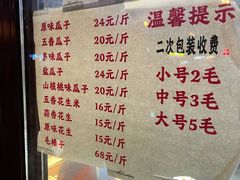 原味瓜子 24元/斤
五香瓜子 20元/斤
多味瓜子 20元/斤
盐瓜子 24元/斤
山核桃味瓜子 20元/斤
五香花生米 16元/斤
蒜香花生 15元/斤
原味花生 15元/斤
毛嗑子 68元/斤
温馨提示
二次包装收费
小号2毛
中号3毛
大号5毛